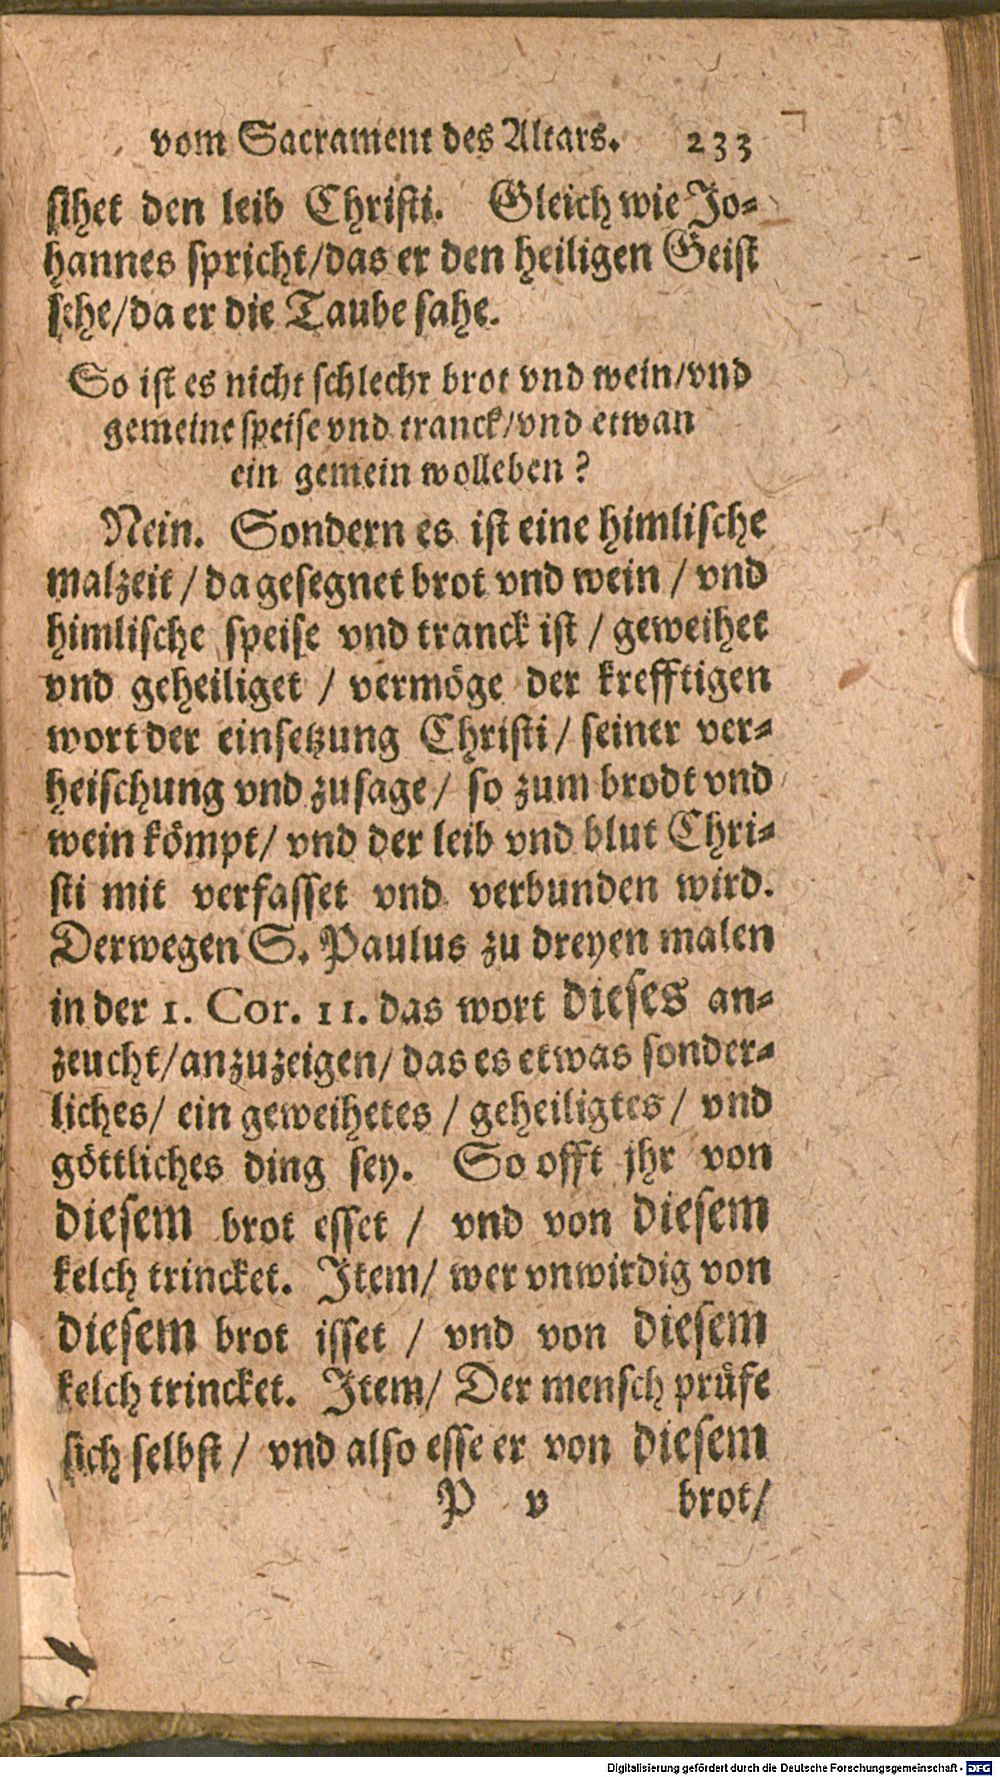 vom Sacrament des Altars. 233
sihet den leib Christi. Gleich wie Jo-
hannes spricht/das er den heiligen Geist
sehe/da er die Taube sahe.
So ist es nicht schlecht brot vnd wein/vnd
gemeine speise vnd tranck/vnd etwan
ein gemein wolleben?
Nein. Sondern es ist eine himlische
malzeit / da gesegnet brot vnd wein / vnd
himlische speise vnd tranck ist / geweihet
vnd geheiliget / vermöge der krefftigen
wort der einsetzung Christi/ seiner ver-
heischung vnd zusage/ so zum brodt vnd
wein kömpt/ vnd der leib vnd blut Chri-
sti mit verfasset vnd verbunden wird.
Derwegen S. Paulus zu dreyen malen
in der 1. Cor. 11. das wort dieses an-
zeucht/anzuzeigen/ das es etwas sonder-
liches/ ein geweihetes / geheiligtes / vnd
göttliches ding sey. So offt jhr von
diesem brot esset / vnd von diesem
kelch trincket. Item/ wer vnwirdig von
diesem brot isset / vnd von diesem
kelch trincket. Item/ Der mensch prüfe
sich selbst / vnd also esse er von diesem
P v brot/
Digitalisierung gefördert durch die Deutsche Forschungsgemeinschaft - DFG